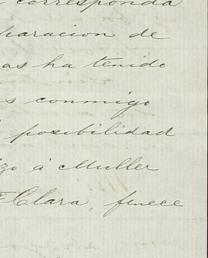 corresponda
aracion de
as ha tenido
s conmigo
posibilidad
zo á Muller
Clara, fuece